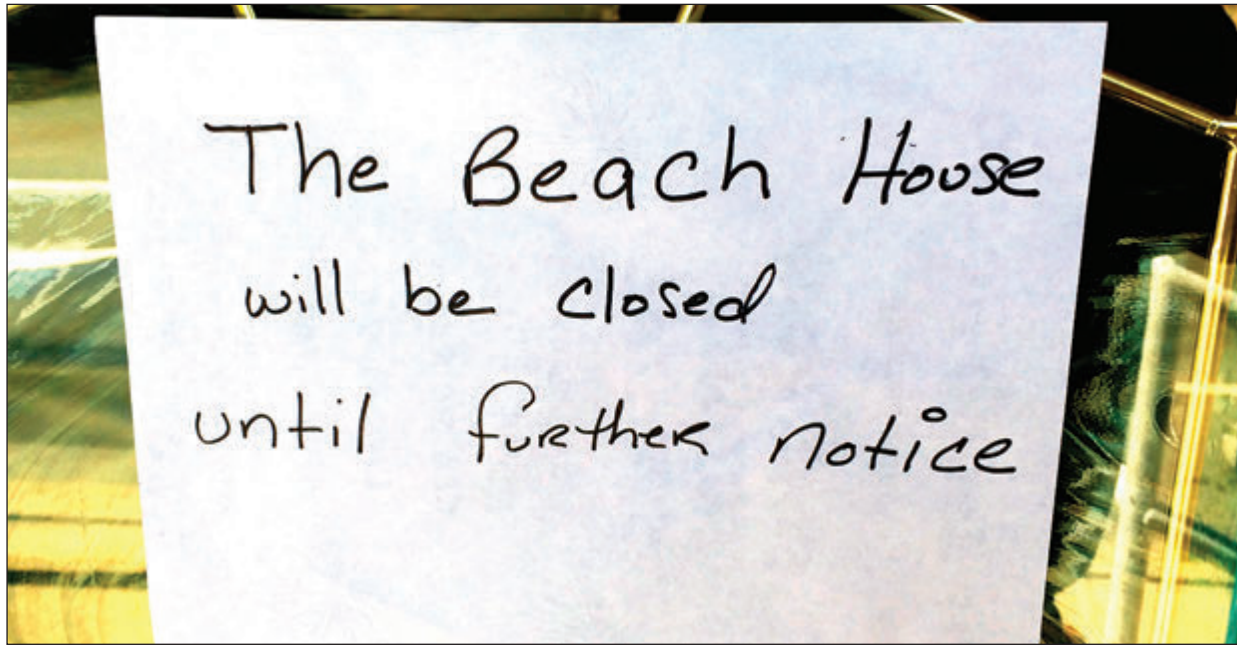 The Beach House
will be closed
until further notice